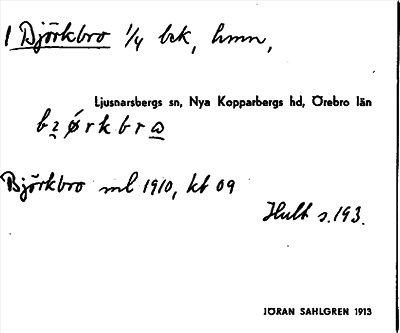 1 Djörkbro 1/4 brk, hmn,
Ljusnarsbergs sn, Nya Kopparbergs hd, Örebro län
bzørkbrω
Björkbro ml 1910, kt 09
Hult s. 193.
JÖRAN SAHLGREN 1913